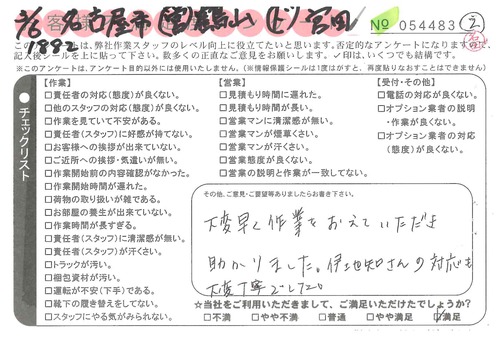 2/6 名古屋市
No 054483
1892
本アンケートは、弊社作業スタッフのレベル向上に役立てたいと思います。否定的なアンケートになりますので、
記入後シールを上に貼って下さい。数多くの正直なご意見をお願いします。✓印は、いくつでも結構です。
※このアンケートは、アンケート目的以外には使用いたしません。(※情報保護シールは1度はがすと、再度貼りなおすことはできません)
チェックリスト
【作業】
□責任者の対応(態度)が良くない。
□他のスタッフの対応(態度)が良くない。
□作業を見ていて不安がある。
□責任者(スタッフ)に好感が持てない。
□お客様への挨拶が出来ていない。
□ご近所への挨拶・気遣いが無い。
□作業開始前の内容確認がなかった。
□作業開始時間が遅れた。
□荷物の取り扱いが雑である。
□お部屋の養生が出来ていない。
□作業時間が長すぎる。
□責任者(スタッフ)に清潔感が無い。
□責任者(スタッフ)が汗くさい。
□トラックが汚い。
□梱包資材が汚い。
□運転が不安(下手)である。
□靴下の履き替えをしてない。
□スタッフにやる気がみられない。
【営業】
□見積もり時間に遅れた。
□見積もり時間が長い。
□営業マンに清潔感が無い。
□営業マンが煙草くさい。
□営業マンが汗くさい。
□営業態度が良くない。
□営業の説明と作業が一致してない。
【受付・その他】
□電話の対応が良くない。
□オプション業者の説明
・作業が良くない。
□オプション業者の対応
(態度)が良くない。
その他、ご意見・ご要望等ありましたらお書き下さい。
大変早く作業をおえていただき
助かりました。伊地知さんの対応も
大変丁寧でした。
☆当社をご利用いただきまして、ご満足いただけたでしょうか?
□不満 □やや不満 □普通 □やや満足 ☑満足